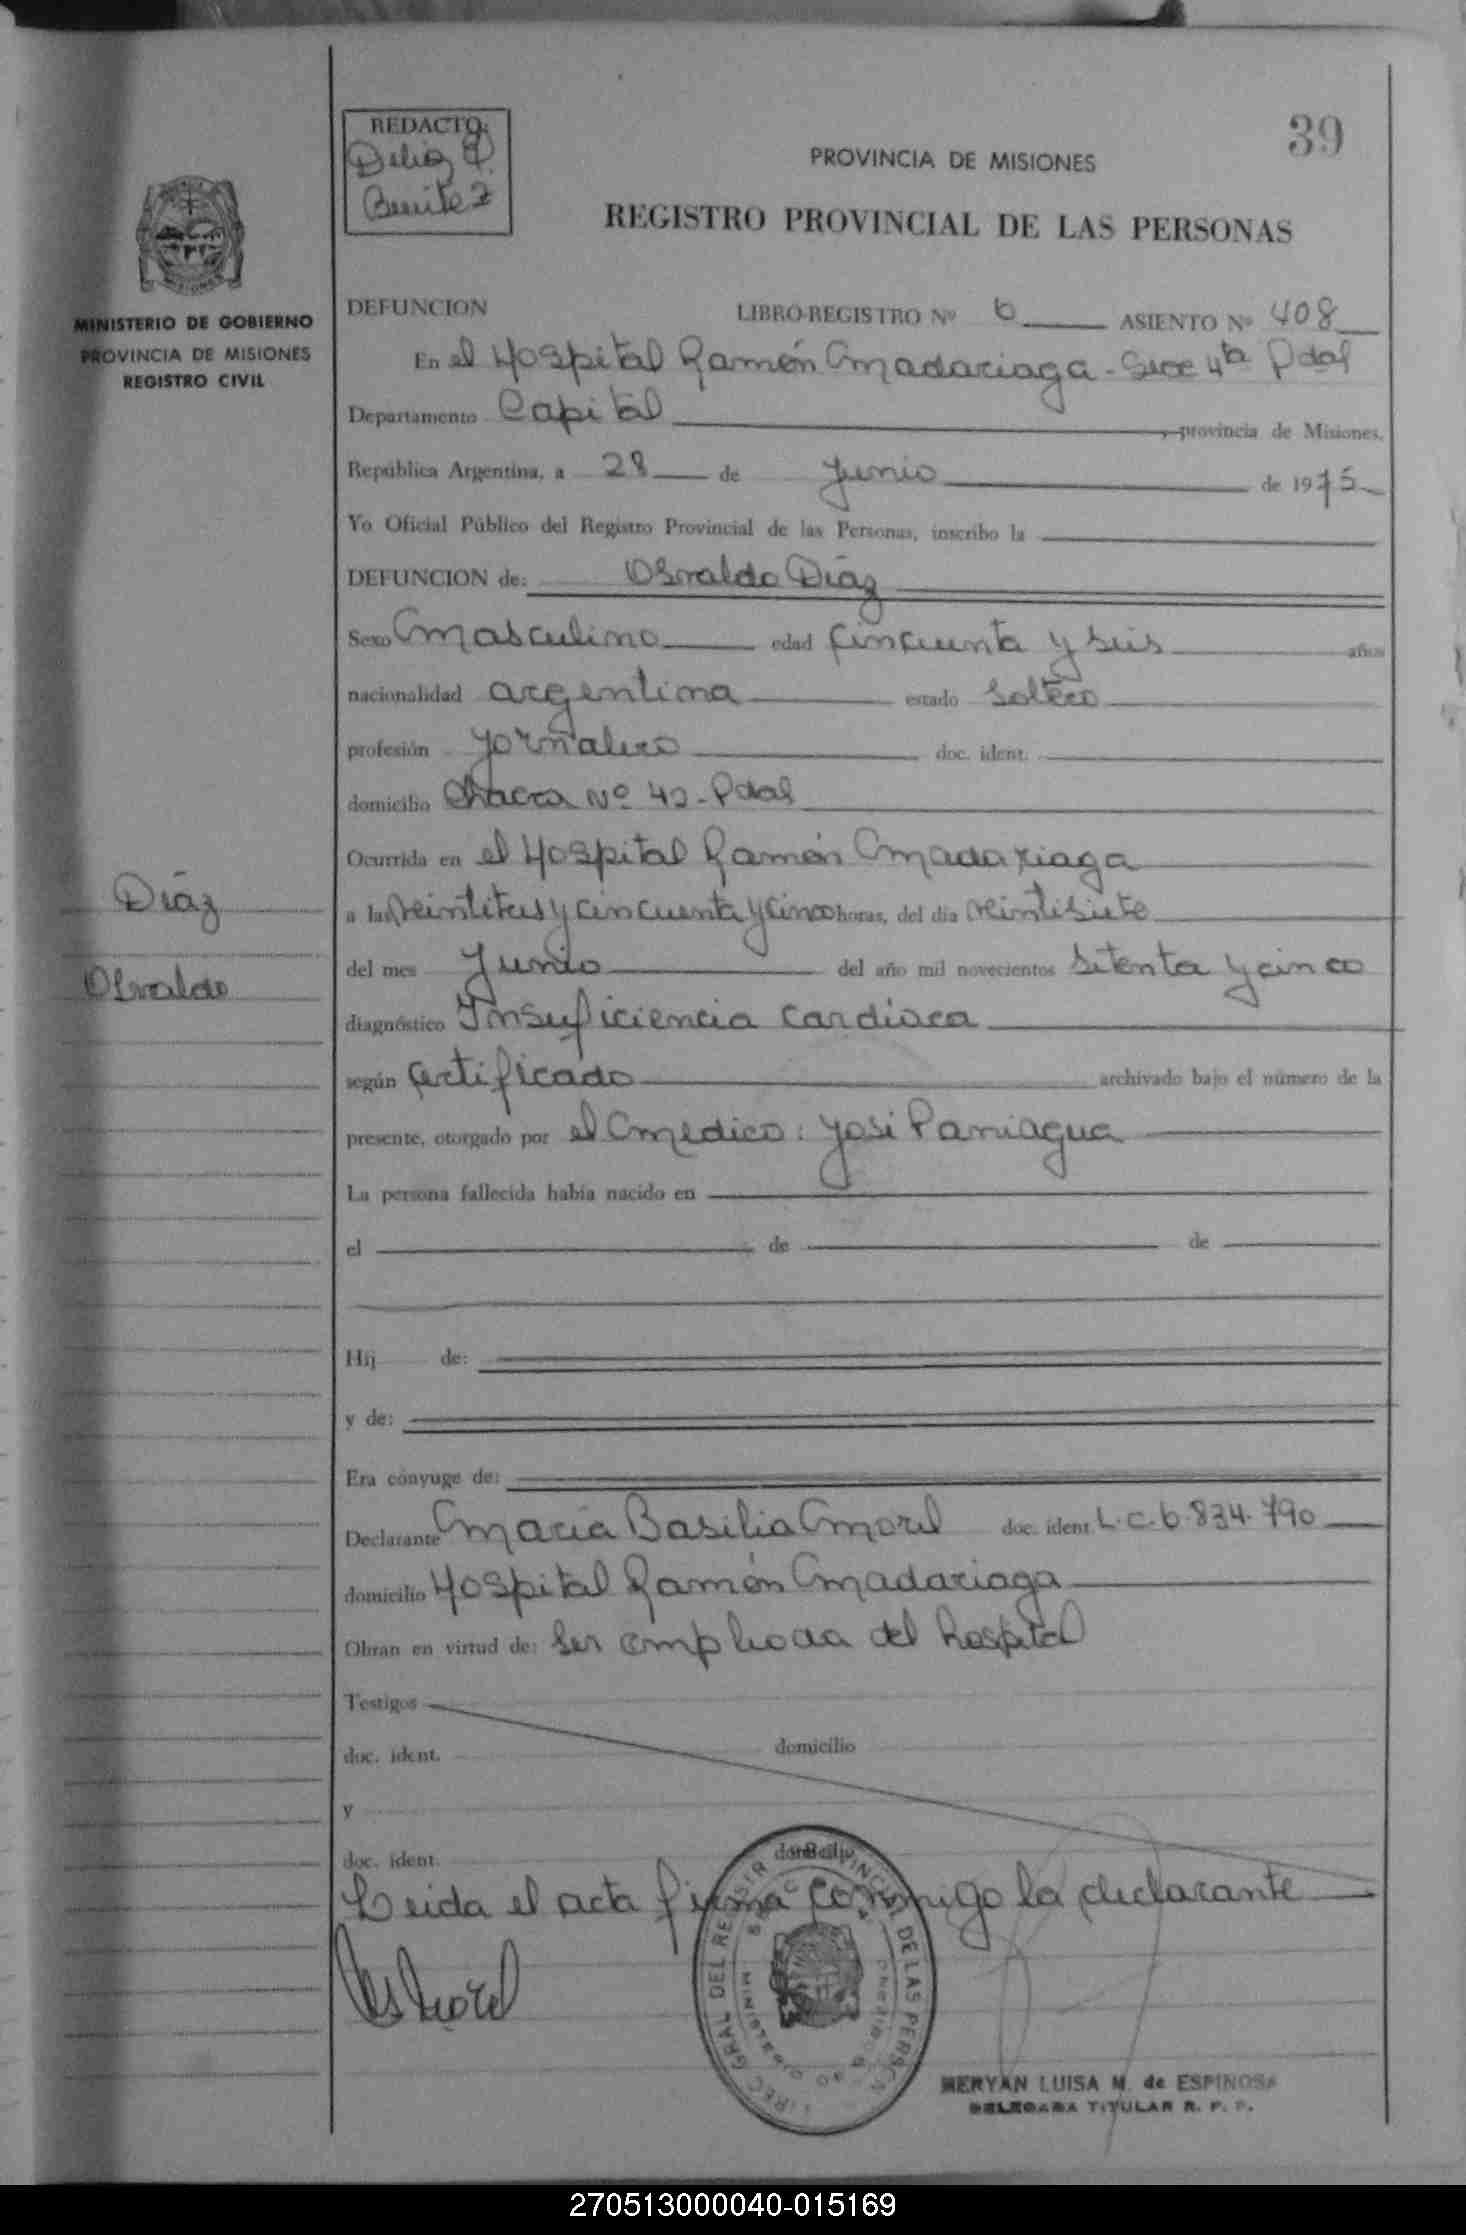 39
REDACTO:
Delia P.
Benitez
PROVINCIA DE MISIONES
REGISTRO PROVINCIAL DE LAS PERSONAS
MINISTERIO DE GOBIERNO
PROVINCIA DE MISIONES
REGISTRO CIVIL
DEFUNCION LIBRO-REGISTRO Nº 6 ASIENTO Nº 408
En el Hospital Ramón Madariaga - Secc 4ta Pdas
Departamento Capital, provincia de Misiones,
República Argentina, a 28 de Junio de 1975
Yo Oficial Público del Registro Provincial de las Personas, inscribo la
DEFUNCION de: Osvaldo Díaz
Sexo Masculino edad Cincuenta y seis años
nacionalidad argentina estado Soltero
profesión Jornalero doc. ident.
domicilio Chacra Nº 42 - Pdas
Ocurrida en el Hospital Ramón Madariaga
a las veintitres y cincuenta y cinco horas, del día veintisiete
del mes Junio del año mil novecientos setenta y cinco
diagnóstico Insuficiencia Cardíaca
según Certificado archivado bajo el número de la
presente, otorgado por el Medico: José Paniagua
La persona fallecida había nacido en
el de de
Hij de:
y de:
Era cónyuge de:
Declarante María Basilia Morel doc. ident. L.C. 6.834.790
domicilio Hospital Ramón Madariaga
Obran en virtud de: Ser empleada del hospital
Testigos
doc. ident. domicilio
y
doc. ident. domicilio
Leida el acta firma conmigo la declarante
Díaz
Osvaldo
MERYAN LUISA M. de ESPINOSA
DELEGADA TITULAR R. P. P.
270513000040-015169